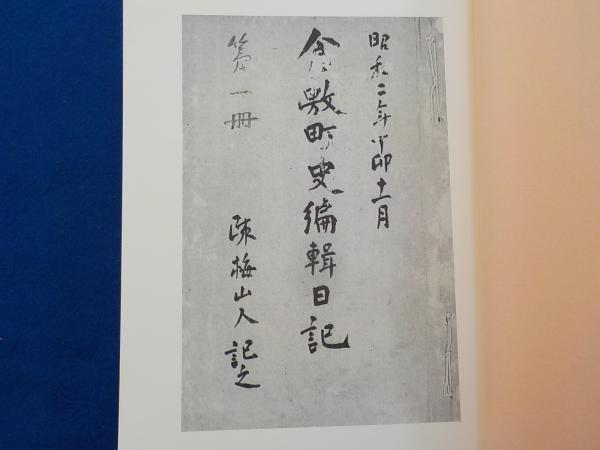 昭和二年丁卯十一月
倉敷町史編輯日記
第一冊
疎梅山人記之